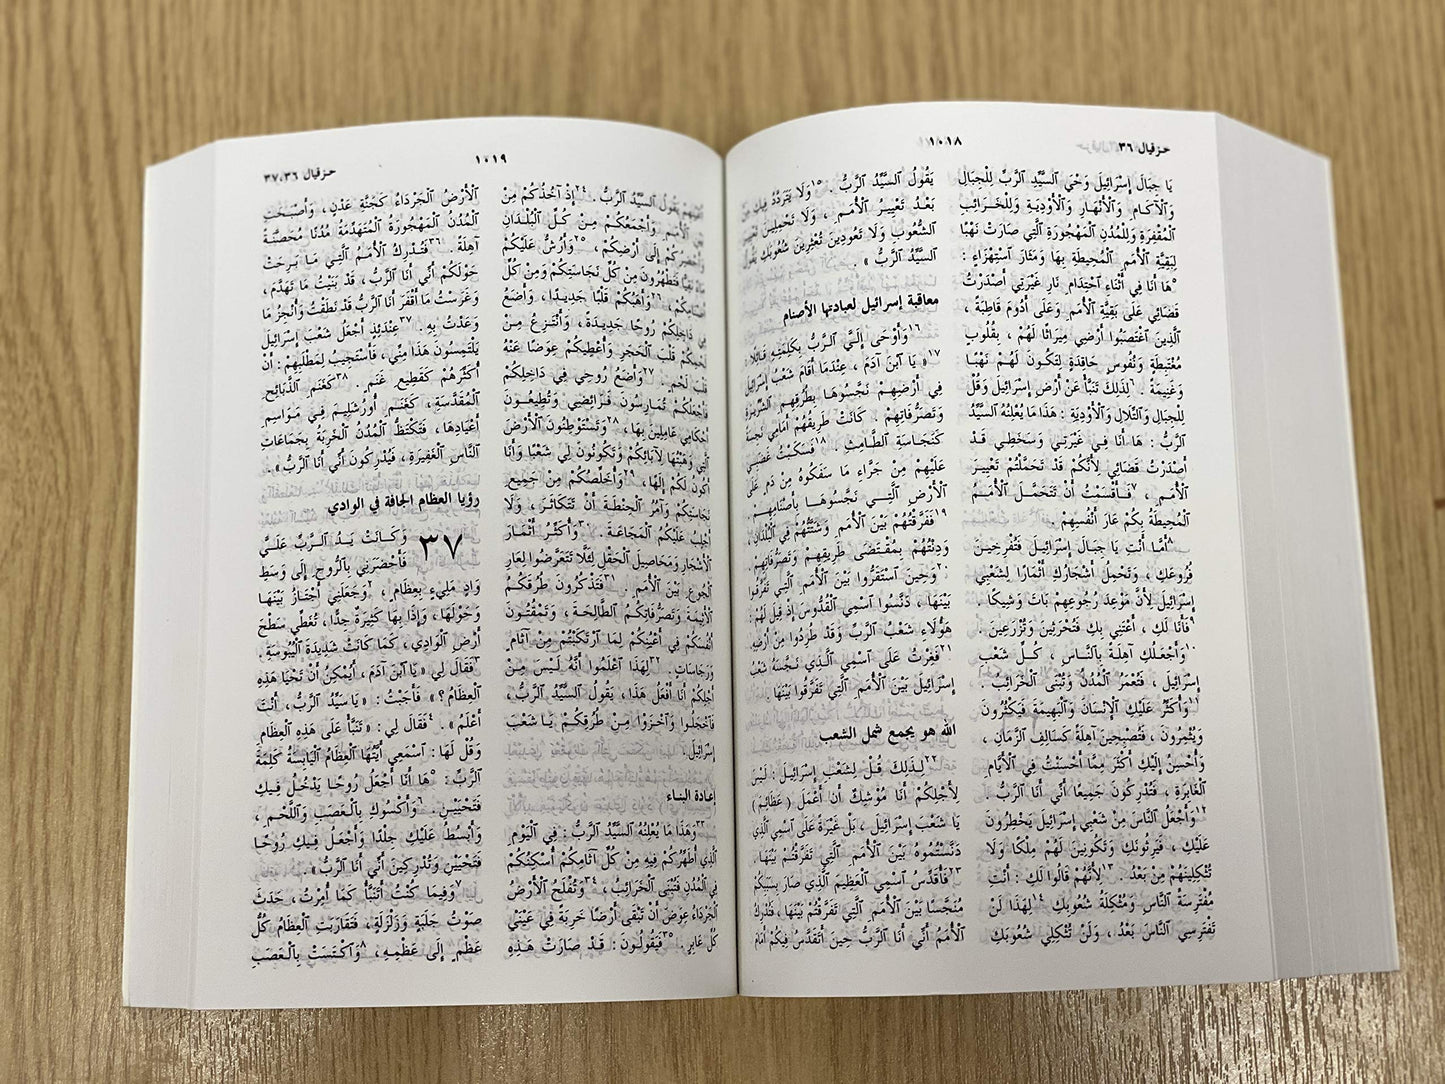 حزقيال ٣٦
١٠١٨
يَا جِبَالَ إِسْرَائِيلَ وَحْيَ ٱلسَّيِّدِ ٱلرَّبِّ لِلْجِبَالِ
وَٱلآكَامِ وَٱلْأَنْهَارِ وَٱلْأَوْدِيَةِ وَلِلْخَرَائِبِ
ٱلْمُقْفِرَةِ وَلِلْمُدُنِ ٱلْمَهْجُورَةِ ٱلَّتِي صَارَتْ نَهْبًا
لِبَقِيَّةِ ٱلْأُمَمِ ٱلْمُحِيطَةِ بِهَا وَمَثَارَ ٱسْتِهْزَاءٍ :
٥هَا أَنَا فِي أَثْنَاءِ ٱحْتِدَامِ نَارِ غَيْرَتِي أَصْدَرْتُ
قَضَائِي عَلَى بَقِيَّةِ ٱلْأُمَمِ وَعَلَى أَدُومَ قَاطِبَةً ،
ٱلَّذِينَ ٱغْتَصَبُوا أَرْضِي مِيرَاثًا لَهُمْ ، بِقُلُوبٍ
مُغْتَبِطَةٍ وَنُفُوسٍ حَاقِدَةٍ لِتَكُونَ لَهُمْ نَهْبًا
وَغَنِيمَةً . ٦لِذَلِكَ تَنَبَّأْ عَنْ أَرْضِ إِسْرَائِيلَ وَقُلْ
لِلْجِبَالِ وَٱلتِّلَالِ وَٱلْأَوْدِيَةِ : هَذَا مَا يُعْلِنُهُ ٱلسَّيِّدُ
ٱلرَّبُّ : هَا أَنَا فِي غَيْرَتِي وَسَخَطِي قَدْ
أَصْدَرْتُ قَضَائِي لأَنَّكُمْ قَدْ تَحَمَّلْتُمْ تَعْيِيرَ
ٱلْأُمَمِ ، ٧فَأَقْسَمْتُ أَنْ تَتَحَمَّلَ ٱلْأُمَمُ
ٱلْمُحِيطَةُ بِكُمْ عَارَ أَنْفُسِهِمْ .
٨أَمَّا أَنْتِ يَا جِبَالَ إِسْرَائِيلَ فَتُفْرِخِينَ
فُرُوعَكِ ، وَتَحْمِلُ أَشْجَارُكِ أَثْمَارًا لِشَعْبِي
إِسْرَائِيلَ لِأَنَّ مَوْعِدَ رُجُوعِهِمْ بَاتَ وَشِيكًا .
٩فَأَنَا لَكِ ، أَعْتَنِي بِكِ فَتُحْرَثِينَ وَتُزْرَعِينَ .
١٠وَأَجْعَلُكِ آهِلَةً بِالنَّاسِ ، كُلِّ شَعْبِ
إِسْرَائِيلَ ، فَتُعْمَرُ ٱلْمُدُنُ وَتُبْنَى ٱلْخَرَائِبُ .
١١وَأُكَثِّرُ عَلَيْكِ ٱلْإِنْسَانَ وَٱلْبَهِيمَةَ فَيَكْثُرُونَ
وَيُثْمِرُونَ ، فَتُصْبِحِينَ آهِلَةً كَسَالِفِ ٱلزَّمَانِ ،
وَأُحْسِنُ إِلَيْكِ أَكْثَرَ مِمَّا أَحْسَنْتُ فِي ٱلْأَيَّامِ
ٱلْغَابِرَةِ ، فَتُدْرِكُونَ جَمِيعًا أَنِّي أَنَا ٱلرَّبُّ .
١٢وَأَجْعَلُ ٱلنَّاسَ مِنْ شَعْبِي إِسْرَائِيلَ يَخْطِرُونَ
عَلَيْكِ ، فَيَرِثُونَكِ وَتَكُونِينَ لَهُمْ مِلْكًا وَلَا
تُثْكِلِينَهُمْ مِنْ بَعْدُ . ١٣لأَنَّهُمْ قَالُوا لَكِ : أَنْتِ
مُفْتَرِسَةُ ٱلنَّاسِ وَمُثْكِلَةُ شُعُوبِكِ ١٤لِهَذَا لَنْ
تَفْتَرِسِي ٱلنَّاسَ بَعْدُ ، وَلَنْ تُثْكِلِي شُعُوبَكِ
يَقُولُ ٱلسَّيِّدُ ٱلرَّبُّ . ١٥وَلَا يَتَرَدَّدُ فِيكِ مِنْ
بَعْدُ تَعْيِيرُ ٱلْأُمَمِ ، وَلَا تَحْمِلِينَ تَعْيِيرَ
ٱلشُّعُوبِ وَلَا تَعُودِينَ تُعْثِرِينَ شُعُوبَكِ يَقُولُ
ٱلسَّيِّدُ ٱلرَّبُّ » .
معاقبة إسرائيل لعبادتها الأصنام
١٦وَأَوْحَى إِلَيَّ ٱلرَّبُّ بِكَلِمَتِهِ قَائِلًا :
١٧« يَا ٱبْنَ آدَمَ ، عِنْدَمَا أَقَامَ شَعْبُ إِسْرَائِيلَ
فِي أَرْضِهِمْ نَجَّسُوهَا بِطُرُقِهِمِ ٱلشِّرِّيرَةِ
وَتَصَرُّفَاتِهِمْ . كَانَتْ طَرِيقُهُمْ أَمَامِي نَجِسَةً
كَنَجَاسَةِ ٱلطَّامِثِ . ١٨فَسَكَبْتُ غَضَبِي
عَلَيْهِمْ مِنْ جَرَّاءِ مَا سَفَكُوهُ مِنْ دَمٍ عَلَى
ٱلْأَرْضِ ٱلَّتِي نَجَّسُوهَا بِأَصْنَامِهِمْ .
١٩فَفَرَّقْتُهُمْ بَيْنَ ٱلْأُمَمِ وَشَتَّتُّهُمْ فِي ٱلْبُلْدَانِ ،
وَدِنْتُهُمْ بِمُقْتَضَى طَرِيقِهِمْ وَتَصَرُّفَاتِهِمْ .
٢٠وَحِينَ ٱسْتَقَرُّوا بَيْنَ ٱلْأُمَمِ ٱلَّتِي تَفَرَّقُوا
بَيْنَهَا ، دَنَّسُوا ٱسْمِي ٱلْقُدُّوسَ إِذْ قِيلَ لَهُمْ :
هَؤُلَاءِ شَعْبُ ٱلرَّبِّ وَقَدْ طُرِدُوا مِنْ أَرْضِهِ .
٢١فَغِرْتُ عَلَى ٱسْمِي ٱلَّذِي نَجَّسَهُ شَعْبُ
إِسْرَائِيلَ بَيْنَ ٱلْأُمَمِ ٱلَّتِي تَفَرَّقُوا بَيْنَهَا .
الله هو يجمع شمل الشعب
٢٢لِذَلِكَ قُلْ لِشَعْبِ إِسْرَائِيلَ : لَيْسَ
لِأَجْلِكُمْ أَنَا مُوْشِكٌ أَنْ أَعْمَلَ ( عَظَائِمَ )
يَا شَعْبَ إِسْرَائِيلَ ، بَلْ غَيْرَةً عَلَى ٱسْمِي ٱلَّذِي
دَنَّسْتُمُوهُ بَيْنَ ٱلْأُمَمِ ٱلَّتِي تَفَرَّقْتُمْ بَيْنَهَا .
٢٣فَأُقَدِّسُ ٱسْمِي ٱلْعَظِيمَ ٱلَّذِي صَارَ بِسَبَبِكُمْ
مُنَجَّسًا بَيْنَ ٱلْأُمَمِ ٱلَّتِي تَفَرَّقْتُمْ بَيْنَهَا ، فَتُدْرِكُ
ٱلْأُمَمُ أَنِّي أَنَا ٱلرَّبُّ حِينَ أَتَقَدَّسُ فِيكُمْ أَمَامَ
١٠١٩
حزقيال ٣٦،٣٧
أَعْيُنِهِمْ يَقُولُ ٱلسَّيِّدُ ٱلرَّبُّ . ٢٤إِذْ آخُذُكُمْ مِنْ
بَيْنِ ٱلْأُمَمِ وَأَجْمَعُكُمْ مِنْ كُلِّ ٱلْبُلْدَانِ
وَأُحْضِرُكُمْ إِلَى أَرْضِكُمْ ، ٢٥وَأَرُشُّ عَلَيْكُمْ
مَاءً نَقِيًّا فَتَطْهُرُونَ مِنْ كُلِّ نَجَاسَتِكُمْ وَمِنْ كُلِّ
أَصْنَامِكُمْ . ٢٦وَأَهَبُكُمْ قَلْبًا جَدِيدًا ، وَأَضَعُ
فِي دَاخِلِكُمْ رُوحًا جَدِيدَةً ، وَأَنْتَزِعُ مِنْ
لَحْمِكُمْ قَلْبَ ٱلْحَجَرِ وَأُعْطِيكُمْ عِوَضًا عَنْهُ
قَلْبَ لَحْمٍ . ٢٧وَأَضَعُ رُوحِي فِي دَاخِلِكُمْ
فَأَجْعَلُكُمْ تُمَارِسُونَ فَرَائِضِي وَتُطِيعُونَ
أَحْكَامِي عَامِلِينَ بِهَا ، ٢٨وَتَسْتَوْطِنُونَ ٱلْأَرْضَ
ٱلَّتِي وَهَبْتُهَا لِآبَائِكُمْ وَتَكُونُونَ لِي شَعْبًا وَأَنَا
أَكُونُ لَكُمْ إِلَهًا ، ٢٩وَأُخَلِّصُكُمْ مِنْ جَمِيعِ
نَجَاسَتِكُمْ وَآمُرُ ٱلْحِنْطَةَ أَنْ تَتَكَاثَرَ ، وَلَا
أَجْلِبُ عَلَيْكُمُ ٱلْمَجَاعَةَ . ٣٠وَأُكَثِّرُ أَثْمَارَ
ٱلْأَشْجَارِ وَمَحَاصِيلَ ٱلْحَقْلِ لِئَلَّا تَتَعَرَّضُوا لِعَارِ
ٱلْجُوعِ بَيْنَ ٱلْأُمَمِ . ٣١فَتَذْكُرُونَ طُرُقَكُمُ
ٱلْأَثِيمَةَ وَتَصَرُّفَاتِكُمُ ٱلطَّالِحَةَ ، وَتَمْقُتُونَ
أَنْفُسَكُمْ فِي أَعْيُنِكُمْ لِمَا ٱرْتَكَبْتُمْ مِنْ آثَامٍ
وَرَجَاسَاتٍ . ٣٢لِهَذَا ٱعْلَمُوا أَنَّهُ لَيْسَ مِنْ
أَجْلِكُمْ أَنَا أَفْعَلُ هَذَا ، يَقُولُ ٱلسَّيِّدُ ٱلرَّبُّ ،
فَٱخْجَلُوا وَٱخْزَوْا مِنْ طُرُقِكُمْ يَا شَعْبَ
إِسْرَائِيلَ .
إعادة البناء
٣٣وَهَذَا مَا يُعْلِنُهُ ٱلسَّيِّدُ ٱلرَّبُّ : فِي ٱلْيَوْمِ
ٱلَّذِي أُطَهِّرُكُمْ فِيهِ مِنْ كُلِّ آثَامِكُمْ أُسْكِنُكُمْ
فِي ٱلْمُدُنِ فَتُبْنَى ٱلْخَرَائِبُ ، ٣٤وَتُفْلَحُ ٱلْأَرْضُ
ٱلْجَرْدَاءُ عِوَضَ أَنْ تَبْقَى أَرْضًا خَرِبَةً فِي عَيْنَيْ
كُلِّ عَابِرٍ . ٣٥فَيَقُولُونَ : قَدْ صَارَتْ هَذِهِ
ٱلْأَرْضُ ٱلْجَرْدَاءُ كَجَنَّةِ عَدْنٍ ، وَأَصْبَحَتِ
ٱلْمُدُنُ ٱلْمَهْجُورَةُ ٱلْمُتَهَدِّمَةُ مُدُنًا مُحَصَّنَةً
آهِلَةً . ٣٦فَتُدْرِكُ ٱلْأُمَمُ ٱلَّتِي مَا بَرِحَتْ
حَوْلَكُمْ أَنِّي أَنَا ٱلرَّبُّ ، قَدْ بَنَيْتُ مَا تَهَدَّمَ ،
وَغَرَسْتُ مَا أَقْفَرَ أَنَا ٱلرَّبُّ قَدْ نَطَقْتُ وَأُنْجِزُ مَا
وَعَدْتُ بِهِ . ٣٧عِنْدَئِذٍ أَجْعَلُ شَعْبَ إِسْرَائِيلَ
يَلْتَمِسُونَ هَذَا مِنِّي ، فَأَسْتَجِيبُ لِمَطْلَبِهِمْ : أَنْ
أُكَثِّرَهُمْ كَقَطِيعِ غَنَمٍ . ٣٨كَغَنَمِ ٱلذَّبَائِحِ
ٱلْمُقَدَّسَةِ ، كَغَنَمِ أُورُشَلِيمَ فِي مَوَاسِمِ
أَعْيَادِهَا ، فَتَكْتَظُّ ٱلْمُدُنُ ٱلْخَرِبَةُ بِجَمَاعَاتِ
ٱلنَّاسِ ٱلْغَفِيرَةِ ، فَيُدْرِكُونَ أَنِّي أَنَا ٱلرَّبُّ » .
رؤيا العظام الجافة في الوادي
٣٧ وَكَانَتْ يَدُ ٱلرَّبِّ عَلَيَّ
فَأَحْضَرَنِي بِٱلرُّوحِ إِلَى وَسَطِ
وَادٍ مَلِيءٍ بِعِظَامٍ ، ٢وَجَعَلَنِي أَجْتَازُ بَيْنَهَا
وَحَوْلَهَا ، وَإِذَا بِهَا كَثِيرَةٌ جِدًّا ، تُغَطِّي سَطْحَ
أَرْضِ ٱلْوَادِي ، كَمَا كَانَتْ شَدِيدَةَ ٱلْيُبُوسَةِ .
٣فَقَالَ لِي « يَا ٱبْنَ آدَمَ ، أَيُمْكِنُ أَنْ تَحْيَا هَذِهِ
ٱلْعِظَامُ؟ » فَأَجَبْتُ : « يَا سَيِّدُ ٱلرَّبُّ ، أَنْتَ
أَعْلَمُ » . ٤فَقَالَ لِي : « تَنَبَّأْ عَلَى هَذِهِ ٱلْعِظَامِ
وَقُلْ لَهَا : ٱسْمَعِي أَيَّتُهَا ٱلْعِظَامُ ٱلْيَابِسَةُ كَلِمَةَ
ٱلرَّبِّ : ٥هَا أَنَا أَجْعَلُ رُوحًا يَدْخُلُ فِيكِ
فَتَحْيَيْنَ . ٦وَأَكْسُوكِ بِٱلْعَصَبِ وَٱللَّحْمِ ،
وَأَبْسُطُ عَلَيْكِ جِلْدًا وَأَجْعَلُ فِيكِ رُوحًا
فَتَحْيَيْنَ وَتُدْرِكِينَ أَنِّي أَنَا ٱلرَّبُّ » .
٧وَفِيمَا كُنْتُ أَتَنَبَّأُ كَمَا أُمِرْتُ ، حَدَثَ
صَوْتُ جَلَبَةٍ وَزَلْزَلَةٍ ، فَتَقَارَبَتِ ٱلْعِظَامُ كُلُّ
عَظْمٍ إِلَى عَظْمِهِ ، ٨وَٱكْتَسَتْ بِٱلْعَصَبِ